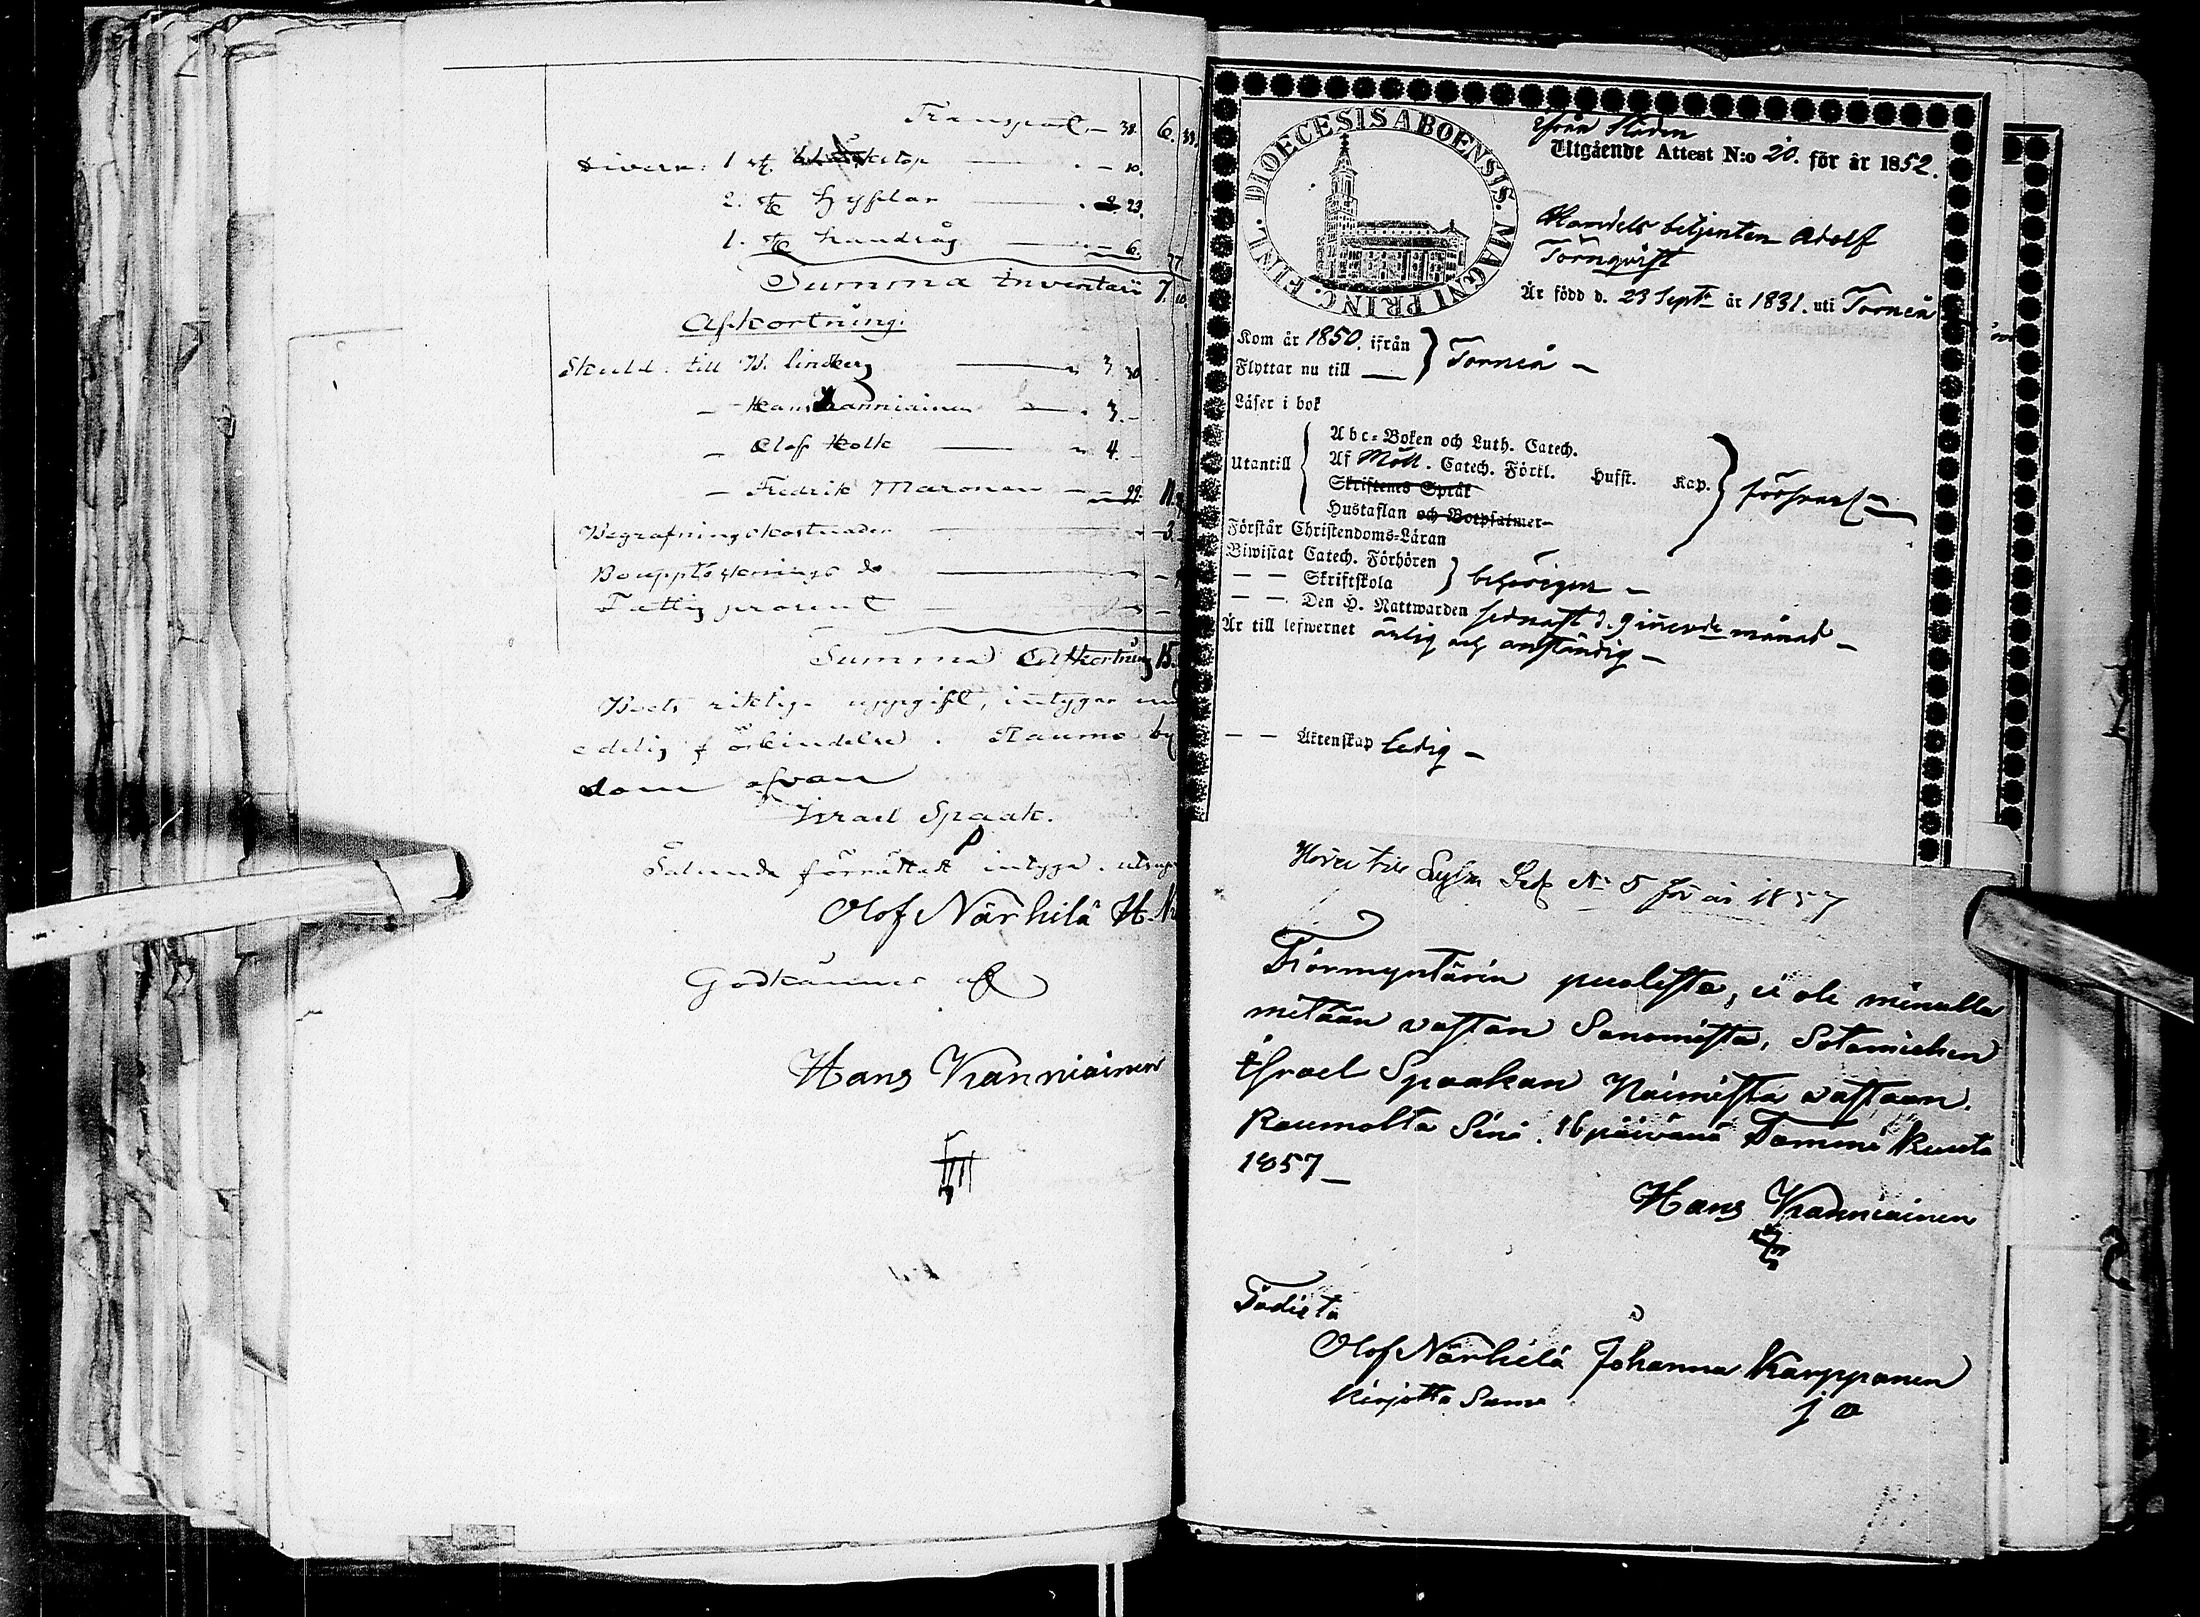 Transport — 38. 6. 33.
Divern: 1 st. — 10.
2. st hyflar — 23.
1. st handsåg — 6.
Summa Inventarii 7.
Afkortning:
Skuld till H. Lindberg — 3 30
— Hans Kanniainen — 3. —
— Olof Kolk — 4. —
— Fredrik Maronen — 22. 11.
Begrafningskostnader — 3.
Bouppteknings do —
Fattig prosent —
Summa Afkortning 15.
riktiga uppgift, intygar
edelig förbindelse. Raumo by
som ofvan
Israel Spaak.
Sålunda förrättat intyga.
Olof Närhilä H. N
Godkännes af
Hans Kanniainen
DIOECESIS ABOENSIS. MAGNI PRINC. FINL.
från Staden
Utgående Attest N:o 20. för år 1852.
Handels betjenten Adolf
Törnqvist
Är född d. 23 Sept. år 1831. uti Torneå
Kom år 1850. ifrån
Flyttar nu till — } Torneå —
Läser i bok
Utantill
Abc-Boken och Luth. Catech.
Af Möll. Catech. Förkl. Husst. Kap.
Skriftens Språk
Hustaflan och Botpsalmer
försvarl.
Förstår Christendoms-Läran
Biwistat Catech. Förhören
— — Skriftskola } behörigen —
— — Den H. Nattwarden sednast d. 9 innevde månad —
Är till lefwernet ärlig och anständig —
— — Äktenskap ledig —
Hörer till Lysn Sed. N 5 för år 1857
Förmyntärin puolesta, ei ole minulla
mitään vastan Sanomista, Sotamiehen
Israel Spaakan Naimista vastaan.
Raumolta Sinä. 16 päivänä Tammi Kuuta
1857 —
Hans Kanniainen
Todista
Olof Närhilä Johanna Karppanen
Kirjotta Sama